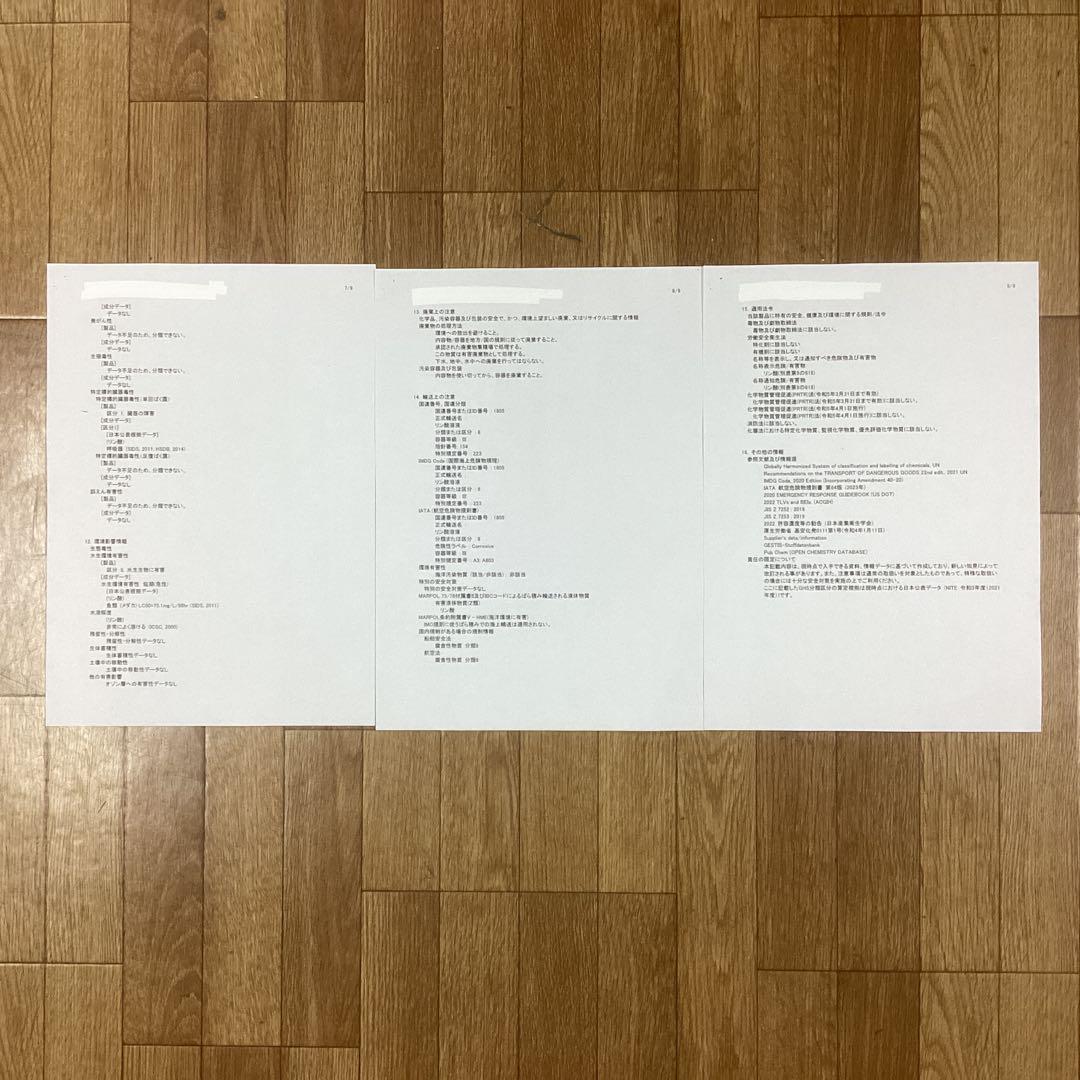 7/9
[成分データ]
データなし
発がん性
[製品]
データ不足のため、分類できない。
[成分データ]
データなし
生殖毒性
[製品]
データ不足のため、分類できない。
[成分データ]
データなし
特定標的臓器毒性
特定標的臓器毒性(単回ばく露)
[製品]
区分 1. 臓器の障害
[成分データ]
[区分1]
[日本公表根拠データ]
(リン酸)
呼吸器 (SIDS, 2011; HSDB, 2014)
特定標的臓器毒性(反復ばく露)
[製品]
データ不足のため、分類できない。
[成分データ]
データなし
誤えん有害性
[製品]
データ不足のため、分類できない。
[成分データ]
データなし
12. 環境影響情報
生態毒性
水生環境有害性
[製品]
区分 3. 水生生物に有害
[成分データ]
水生環境有害性 短期(急性)
[日本公表根拠データ]
(リン酸)
魚類 (メダカ) LC50=75.1mg/L/96hr (SIDS, 2011)
水溶解度
(リン酸)
非常によく溶ける (ICSC, 2000)
残留性・分解性
残留性・分解性データなし
生体蓄積性
生体蓄積性データなし
土壌中の移動性
土壌中の移動性データなし
他の有害影響
オゾン層への有害性データなし
8/9
13. 廃棄上の注意
化学品、汚染容器及び包装の安全で、かつ、環境上望ましい廃棄、又はリサイクルに関する情報
廃棄物の処理方法
環境への放出を避けること。
内容物/容器を地方/国の規則に従って廃棄すること。
承認された廃棄物集積場で処理する。
この物質は有害廃棄物として処理する。
下水、地中、水中への廃棄を行ってはならない。
汚染容器及び包装
内容物を使い切ってから、容器を廃棄すること。
14. 輸送上の注意
国連番号、国連分類
国連番号またはID番号 : 1805
正式輸送名 :
リン酸溶液
分類または区分 : 8
容器等級 : III
指針番号: 154
特別規定番号 : 223
IMDG Code (国際海上危険物規程)
国連番号またはID番号 : 1805
正式輸送名 :
リン酸溶液
分類または区分 : 8
容器等級 : III
特別規定番号 : 223
IATA (航空危険物規則書)
国連番号またはID番号 : 1805
正式輸送名 :
リン酸溶液
分類または区分 : 8
危険性ラベル : Corrosive
容器等級 : III
特別規定番号 : A3; A803
環境有害性
海洋汚染物質 (該当/非該当) : 非該当
特別の安全対策
特別の安全対策データなし
MARPOL 73/78付属書II及びIBCコードによるばら積み輸送される液体物質
有害液体物質(Z類)
リン酸
MARPOL条約附属書V - HME(海洋環境に有害)
IMO規則に従うばら積みでの海上輸送は適用されない。
国内規制がある場合の規制情報
船舶安全法
腐食性物質 分類8
航空法
腐食性物質 分類8
9/9
15. 適用法令
当該製品に特有の安全、健康及び環境に関する規則/法令
毒物及び劇物取締法
毒物及び劇物取締法に該当しない。
労働安全衛生法
特化則に該当しない
有機則に該当しない
名称等を表示し、又は通知すべき危険物及び有害物
名称表示危険/有害物
リン酸(別表第9の618)
名称通知危険/有害物
リン酸(別表第9の618)
化学物質管理促進(PRTR)法(令和5年3月31日まで有効)
化学物質管理促進(PRTR)法(令和5年3月31日まで有効)に該当しない。
化学物質管理促進(PRTR)法(令和5年4月1日施行)
化学物質管理促進(PRTR)法(令和5年4月1日施行)に該当しない。
消防法に該当しない。
化審法における特定化学物質、監視化学物質、優先評価化学物質に該当しない。
16. その他の情報
参照文献及び情報源
Globally Harmonized System of classification and labelling of chemicals, UN
Recommendations on the TRANSPORT OF DANGEROUS GOODS 22nd edit., 2021 UN
IMDG Code, 2020 Edition (Incorporating Amendment 40-20)
IATA 航空危険物規則書 第64版 (2023年)
2020 EMERGENCY RESPONSE GUIDEBOOK (US DOT)
2022 TLVs and BEIs. (ACGIH)
JIS Z 7252 : 2019
JIS Z 7253 : 2019
2022 許容濃度等の勧告 (日本産業衛生学会)
厚生労働省 基安化発0111第1号(令和4年1月11日)
Supplier's data/information
GESTIS-Stoffdatenbank
Pub Chem (OPEN CHEMISTRY DATABASE)
責任の限定について
本記載内容は、現時点で入手できる資料、情報データに基づいて作成しており、新しい知見によって
改訂される事があります。また、注意事項は通常の取扱いを対象としたものであって、特殊な取扱い
の場合には十分な安全対策を実施の上でご利用ください。
ここに記載したGHS分類区分の算定根拠は現時点における日本公表データ (NITE 令和3年度(2021
年度))です。